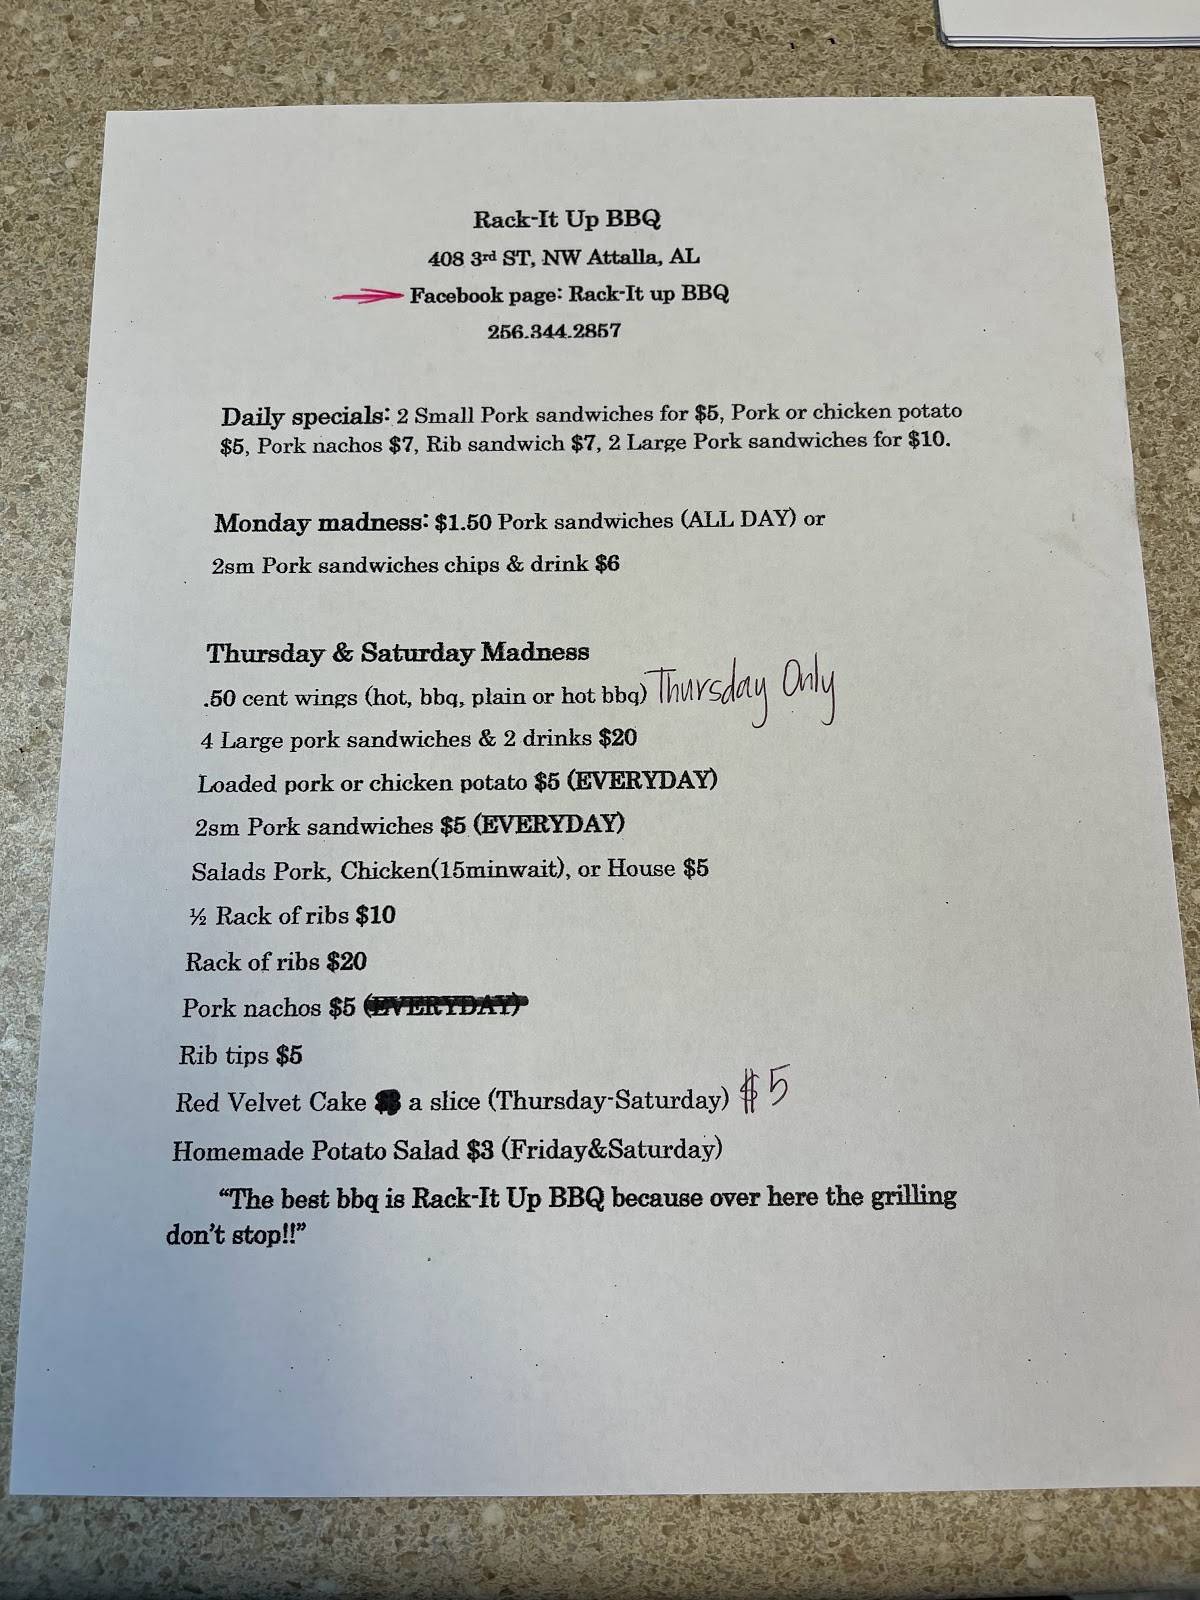 Rack-It Up BBQ
408 3rd ST, NW Attalla, AL
Facebook page: Rack-It up BBQ
256.344.2857
Daily specials: 2 Small Pork sandwiches for $5, Pork or chicken potato
$5, Pork nachos $7, Rib sandwich $7, 2 Large Pork sandwiches for $10.
Monday madness: $1.50 Pork sandwiches (ALL DAY) or
2sm Pork sandwiches chips & drink $6
Thursday & Saturday Madness
.50 cent wings (hot, bbq, plain or hot bbq) Thursday Only
4 Large pork sandwiches & 2 drinks $20
Loaded pork or chicken potato $5 (EVERYDAY)
2sm Pork sandwiches $5 (EVERYDAY)
Salads Pork, Chicken(15minwait), or House $5
½ Rack of ribs $10
Rack of ribs $20
Pork nachos $5 (EVERYDAY)
Rib tips $5
Red Velvet Cake a slice (Thursday-Saturday) $5
Homemade Potato Salad $3 (Friday&Saturday)
“The best bbq is Rack-It Up BBQ because over here the grilling
don’t stop!!”